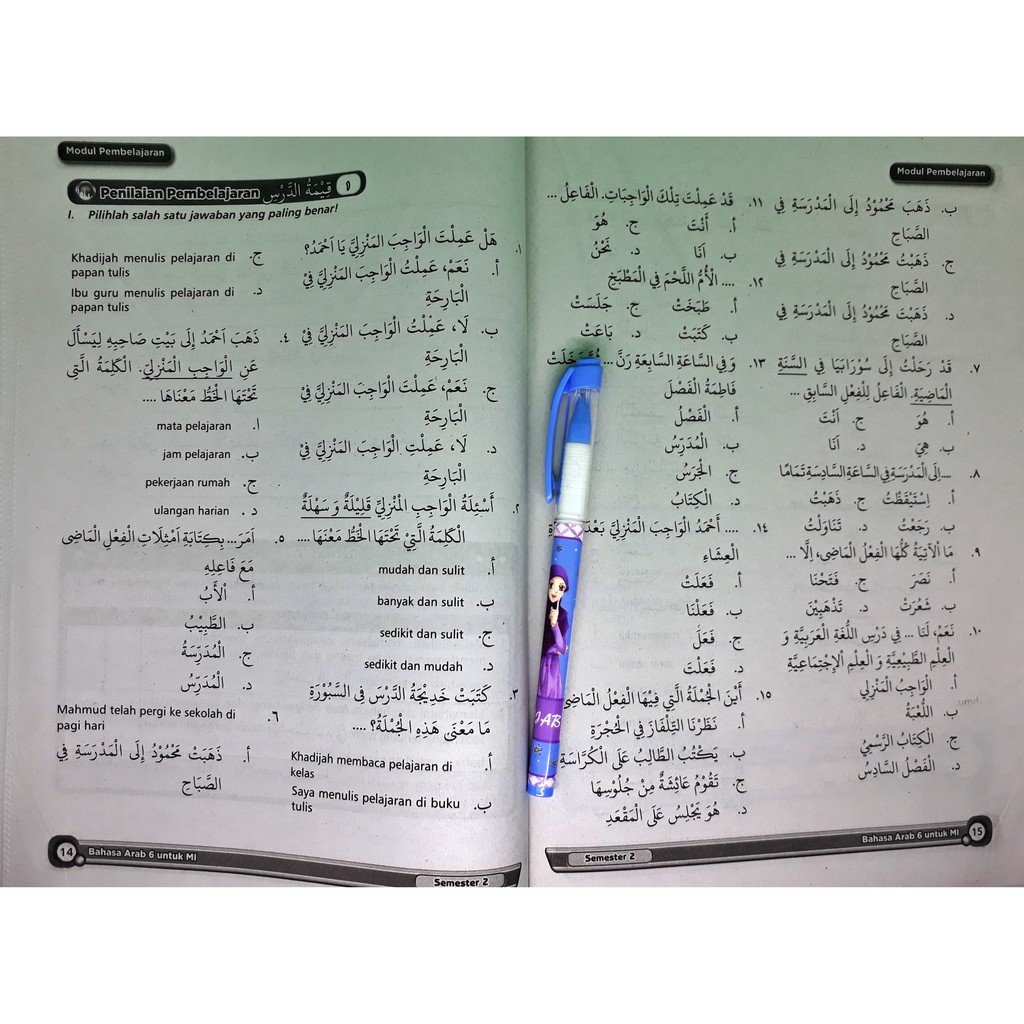 Modul Pembelajaran
Penilaian Pembelajaran قِيْمَةُ الدَّرْسِ
I. Pilihlah salah satu jawaban yang paling benar!
١. هَلْ عَمِلْتَ الْوَاجِبَ الْمَنْزِلِيَّ يَا اَحْمَدُ؟
أ. نَعَمْ، عَمِلْتُ الْوَاجِبَ الْمَنْزِلِيَّ فِيْ
الْبَارِحَةِ
ب. لَا، عَمِلْتُ الْوَاجِبَ الْمَنْزِلِيَّ فِيْ
الْبَارِحَةِ
ج. نَعَمْ، عَمِلْتَ الْوَاجِبَ الْمَنْزِلِيَّ فِيْ
الْبَارِحَةِ
د. لَا، عَمِلْتِ الْوَاجِبَ الْمَنْزِلِيَّ فِيْ
الْبَارِحَةِ
٢. أَسْئِلَةُ الْوَاجِبِ الْمَنْزِلِيِّ قَلِيْلَةٌ وَ سَهْلَةٌ
الْكَلِمَةُ الَّتِيْ تَحْتَهَا الْخَطُّ مَعْنَهَا ....
أ. mudah dan sulit
ب. banyak dan sulit
ج. sedikit dan sulit
د. sedikit dan mudah
٣. كَتَبَتْ خَدِيْجَةُ الدَّرْسَ فِى السَّبُوْرَةِ
مَا مَعْنَى هَذِهِ الْجُمْلَةُ؟ ....
أ. Khadijah membaca pelajaran di
kelas
ب. Saya menulis pelajaran di buku
tulis
ج. Khadijah menulis pelajaran di
papan tulis
د. Ibu guru menulis pelajaran di
papan tulis
٤. ذَهَبَ اَحْمَدُ إِلَى بَيْتِ صَاحِبِهِ لِيَسْأَلَ
عَنِ الْوَاجِبِ الْمَنْزِلِيِّ. الْكَلِمَةُ الَّتِى
تَحْتَهَا الْخَطُّ مَعْنَاهَا ....
ا. mata pelajaran
ب. jam pelajaran
ج. pekerjaan rumah
د. ulangan harian
٥. اَمَرَ... بِكِتَابَةِ اَمْثِلَاتِ الْفِعْلِ الْمَاضِى
مَعَ فَاعِلِهِ
أ. الْأَبُ
ب. الطَّبِيْبُ
ج. الْمُدَرِّسَةُ
د. الْمُدَرِّسُ
٦. Mahmud telah pergi ke sekolah di
pagi hari
أ. ذَهَبَتْ مَحْمُوْدُ إِلَى الْمَدْرَسَةِ فِي
الصَّبَاحِ
14 Bahasa Arab 6 untuk MI
Semester 2
Modul Pembelajaran
ب. ذَهَبَ مَحْمُوْدُ إِلَى الْمَدْرَسَةِ فِي
الصَّبَاحِ
ج. ذَهَبْتُ مَحْمُوْدُ إِلَى الْمَدْرَسَةِ فِي
الصَّبَاحِ
د. ذَهَبْتَ مَحْمُوْدُ إِلَى الْمَدْرَسَةِ فِي
الصَّبَاحِ
٧. قَدْ رَحَلْتُ إِلَى سُوْرَابَيَا فِي السَّنَةِ
الْمَاضِيَةِ. الْفَاعِلُ لِلْفِعْلِ السَّابِقِ ...
أ. هُوَ ج. أَنْتَ
ب. هِيَ د. اَنَا
٨. ....إِلَى الْمَدْرَسَةِ فِي السَّاعَةِ السَّادِسَةِ تَمَامًا
أ. اِسْتَيْقَظْتُ ج. ذَهَبْتُ
ب. رَجَعْتُ د. تَنَاوَلْتُ
٩. مَا اْلآتِيَةُ كُلُّهَا الْفِعْلُ الْمَاضِى، اِلَّا ...
أ. نَصَرَ ج. فَتَحْنَا
ب. شَعُرَتْ د. تَذْهَبِيْنَ
١٠. نَعَمْ، لَنَا ... فِي دَرْسِ اللُّغَةِ الْعَرَبِيَّةِ وَ
الْعِلْمِ الطَّبِيْعِيَّةِ وَ الْعِلْمِ اْلاِجْتِمَاعِيَّةِ
أ. الْوَاجِبُ الْمَنْزِلِي
ب. اللُّعْبَةُ
ج. الْكِتَابُ الرَّسْمِيُّ
د. الْفَصْلُ السَّادِسُ
١١. قَدْ عَمِلْتَ تِلْكَ الْوَاجِبَاتِ. الْفَاعِلُ ...
أ. أَنْتَ ج. هُوَ
ب. اَنَا د. نَحْنُ
١٢. .... الْأُمُّ اللَّحْمَ فِي الْمَطْبَخِ
أ. طَبَخَتْ ج. جَلَسَتْ
ب. كَتَبَتْ د. بَاعَتْ
١٣. وَ فِي السَّاعَةِ السَّابِعَةِ رَنَّ ...
فَاطِمَةُ الْفَصْلَ
أ. الْفَصْلُ
ب. الْمُدَرِّسُ
ج. الْجَرَسُ
د. الْكِتَابُ
١٤. .... أَحْمَدُ الْوَاجِبَ الْمَنْزِلِيَّ بَعْدَ
الْعِشَاءِ
أ. فَعَلَتْ
ب. فَعَلْنَا
ج. فَعَلَ
د. فَعَلْتَ
١٥. أَيْنَ الْجُمْلَةُ الَّتِي فِيْهَا الْفِعْلُ الْمَاضِى
أ. نَظَرْنَا التِّلْفَازَ فِي الْحُجْرَةِ
ب. يَكْتُبُ الطَّالِبُ عَلَى الْكُرَّاسَةِ
ج. تَقُوْمُ عَائِشَةُ مِنْ جُلُوْسِهَا
د. هُوَ يَجْلِسُ عَلَى الْمَقْعَدِ
Semester 2
Bahasa Arab 6 untuk MI 15